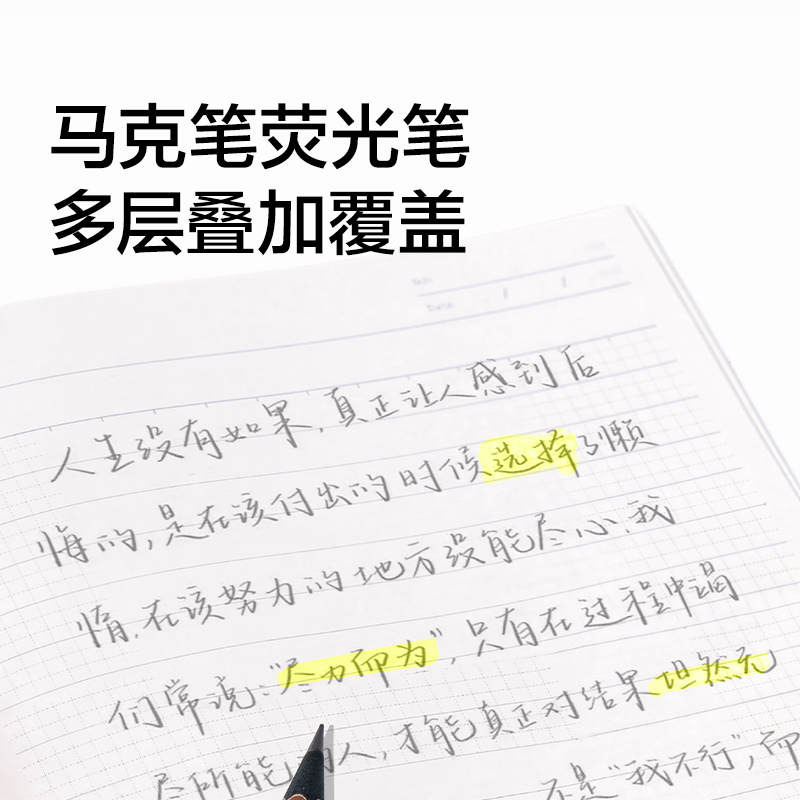 马克笔荧光笔
多层叠加覆盖
Date
/ /
人生没有如果,真正让人感到后
悔的,是在该付出的时候选择了懒
惰.在该努力的地方没能尽心.我
们常说:“尽力而为”,只有在过程中竭
尽所能的人,才能真正对结果坦然无
不是“我不行”,而